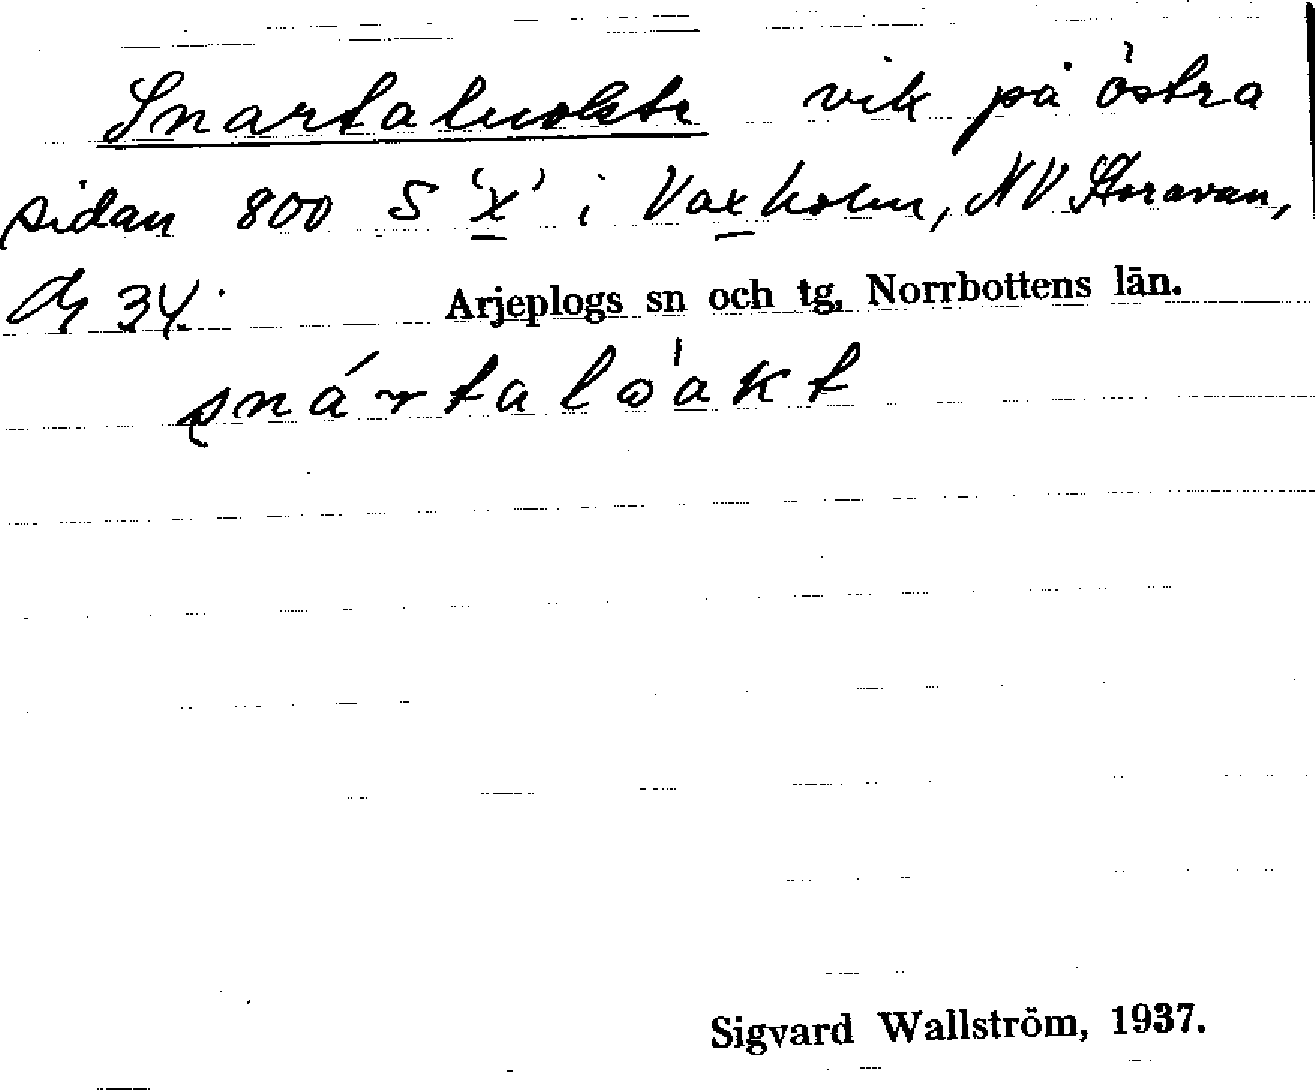 Snartaluokte vik på östra
sidan 800 S 'x' i Vaxholm, NV Storavan,
34.
Arjeplogs sn och tg, Norrbottens län.
snártalɷ'akt
Sigvard Wallström, 1937.